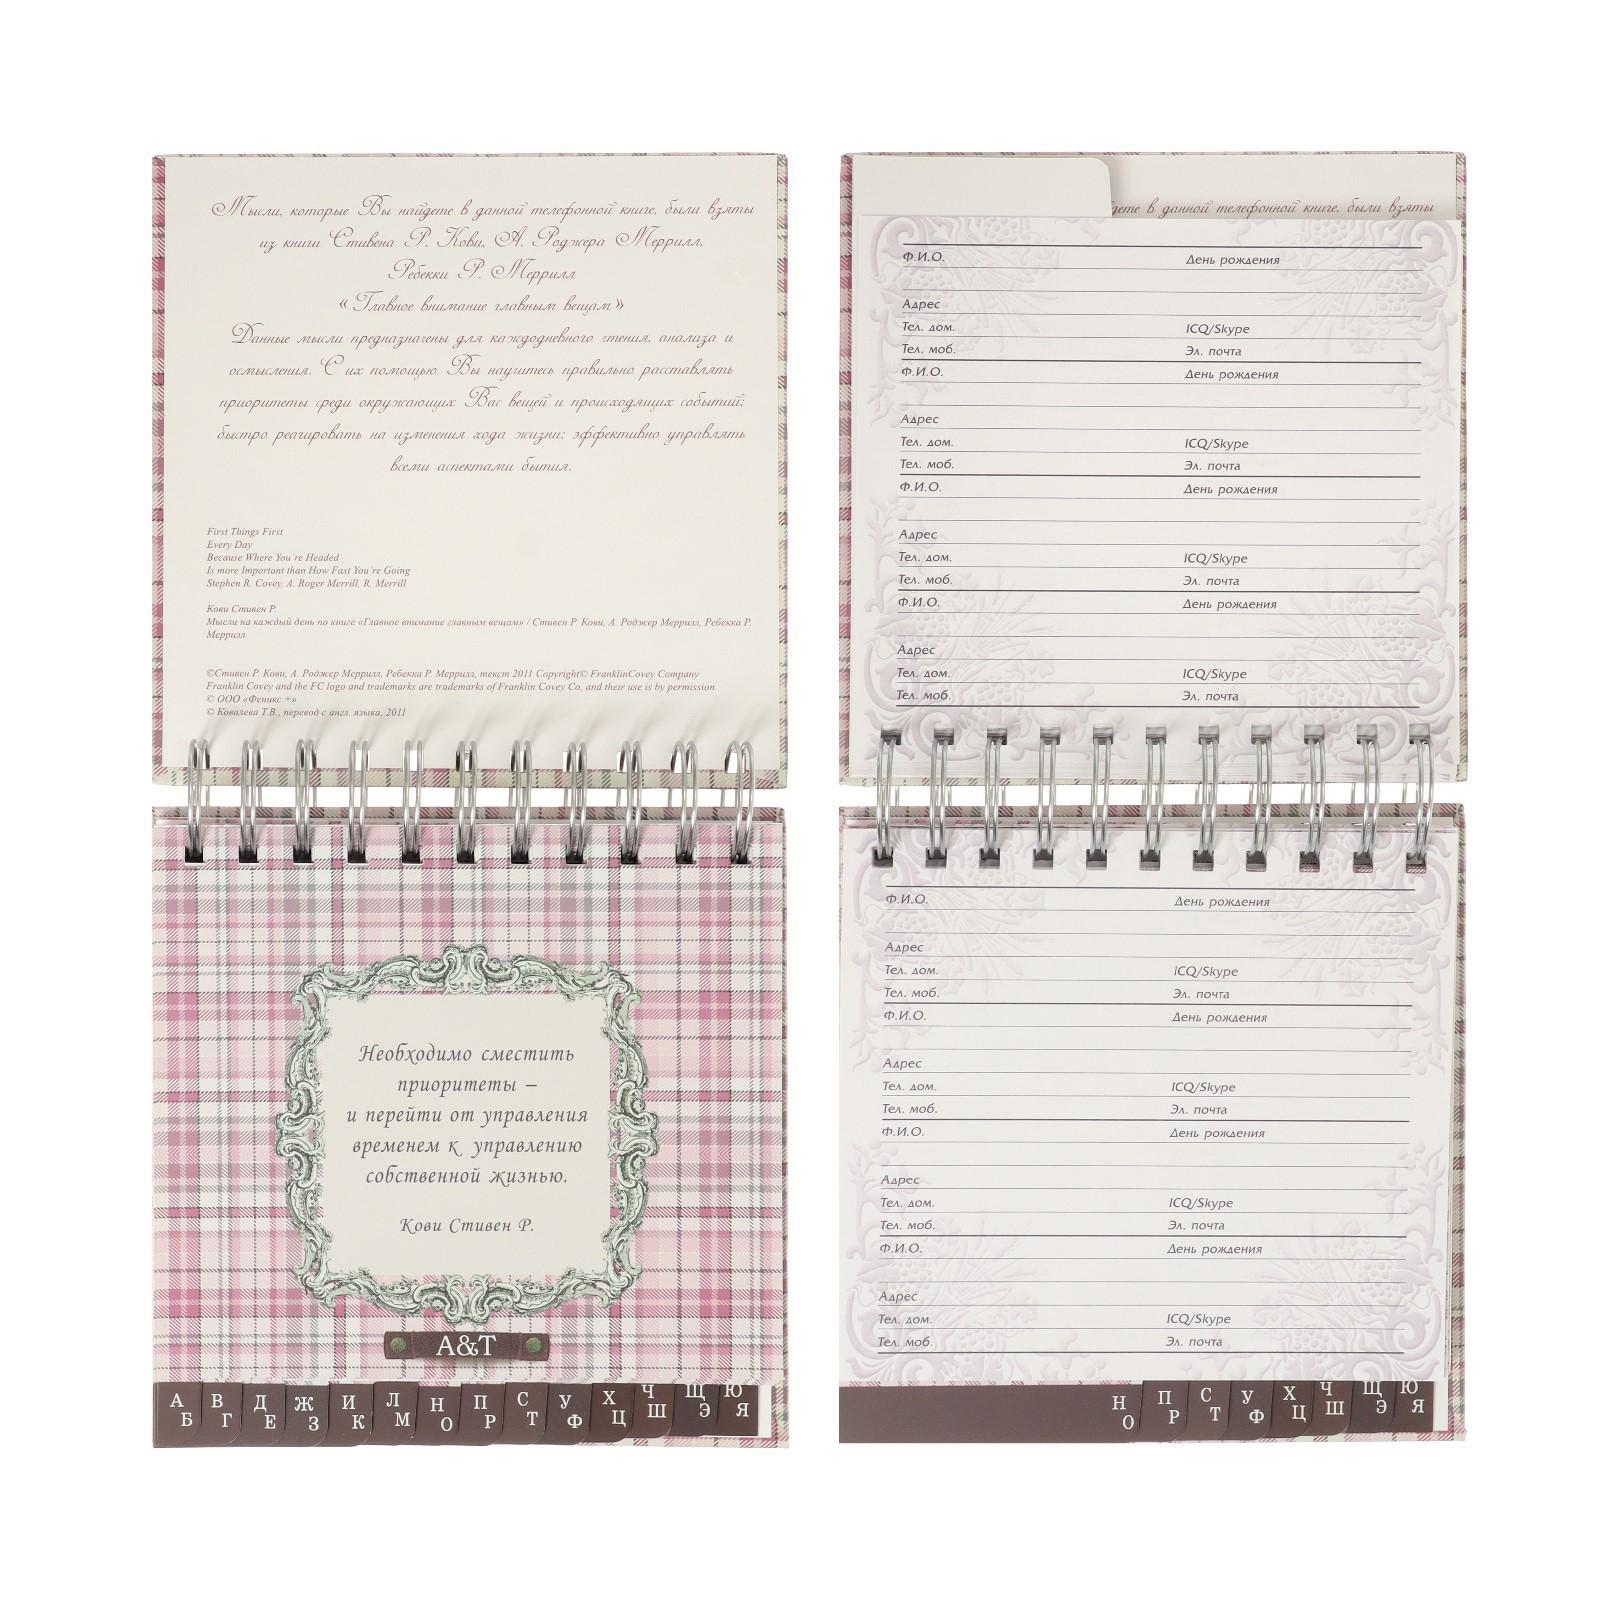 Мысли, которые Вы найдете в данной телефонной книге, были взяты
из книги Стивена Р. Кови, А. Роджера Меррилл,
Ребекки Р. Меррилл
«Главное внимание главным вещам»
Данные мысли предназначены для каждодневного чтения, анализа и
осмысления. С их помощью Вы научитесь правильно расставлять
приоритеты среди окружающих Вас вещей и происходящих событий;
быстро реагировать на изменения хода жизни; эффективно управлять
всеми аспектами бытия.
First Things First
Every Day
Because Where You're Headed
Is more Important than How Fast You're Going
Stephen R. Covey, A. Roger Merrill, R. Merrill
Кови Стивен Р.
Мысли на каждый день по книге «Главное внимание главным вещам» / Стивен Р. Кови, А. Роджер Меррилл, Ребекка Р.
Меррилл.
©Стивен Р. Кови, А. Роджер Меррилл, Ребекка Р. Меррилл, текст 2011 Copyright© FranklinCovey Company
Franklin Covey and the FC logo and trademarks are trademarks of Franklin Covey Co, and their use is by permission
© ООО «Феникс +»
© Ковалева Т.В., перевод с англ. языка, 2011
Необходимо сместить
приоритеты –
и перейти от управления
временем к управлению
собственной жизнью.
Кови Стивен Р.
A&T
А Б В Г Д Е Ж З И К Л М Н О П Р С Т У Ф Х Ц Ч Ш Щ Э Ю Я
в данной телефонной книге, были взяты
Ф.И.О. День рождения
Адрес
Тел. дом. ICQ/Skype
Тел. моб. Эл. почта
Ф.И.О. День рождения
Адрес
Тел. дом. ICQ/Skype
Тел. моб. Эл. почта
Ф.И.О. День рождения
Адрес
Тел. дом. ICQ/Skype
Тел. моб. Эл. почта
Ф.И.О. День рождения
Адрес
Тел. дом. ICQ/Skype
Тел. моб. Эл. почта
Ф.И.О. День рождения
Адрес
Тел. дом. ICQ/Skype
Тел. моб. Эл. почта
Ф.И.О. День рождения
Адрес
Тел. дом. ICQ/Skype
Тел. моб. Эл. почта
Ф.И.О. День рождения
Адрес
Тел. дом. ICQ/Skype
Тел. моб. Эл. почта
Ф.И.О. День рождения
Адрес
Тел. дом. ICQ/Skype
Тел. моб. Эл. почта
Н О П Р С Т У Ф Х Ц Ч Ш Щ Э Ю Я